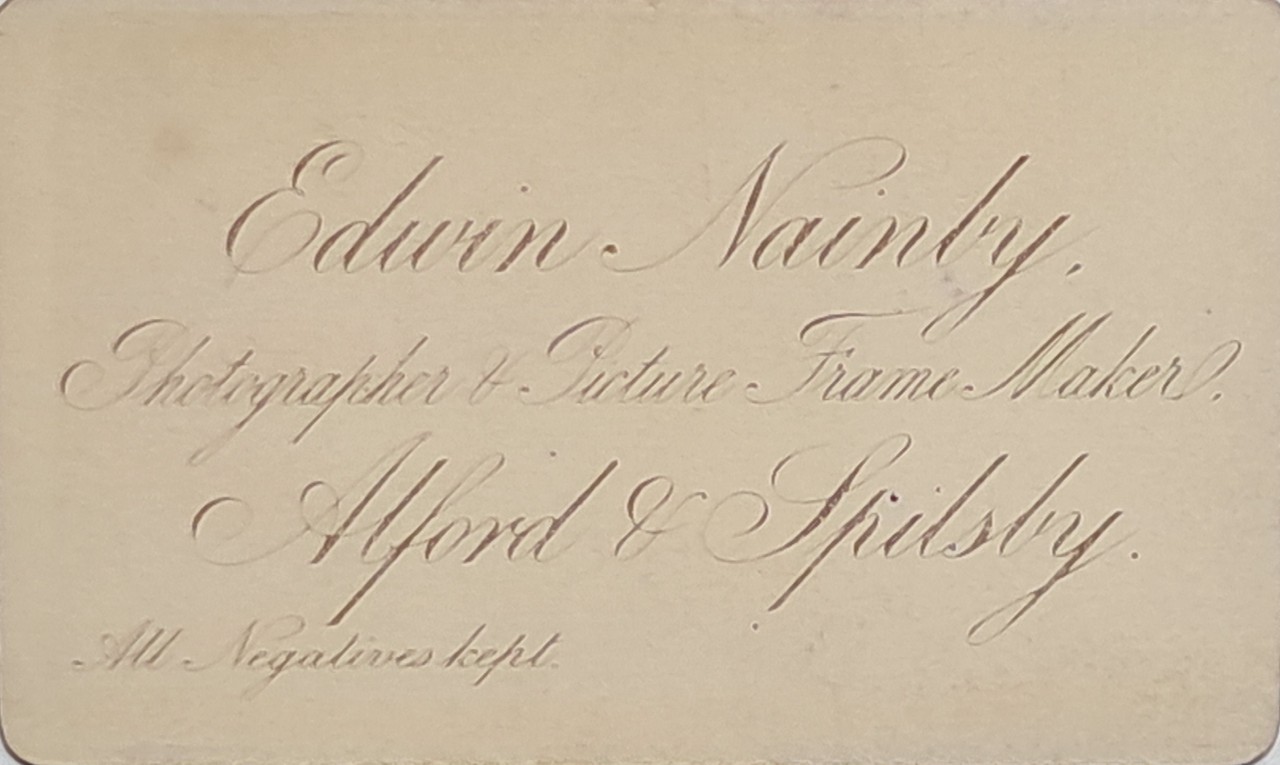 Edwin Nainby.
Photographer & Picture Frame Maker.
Alford & Spilsby.
All Negatives kept.